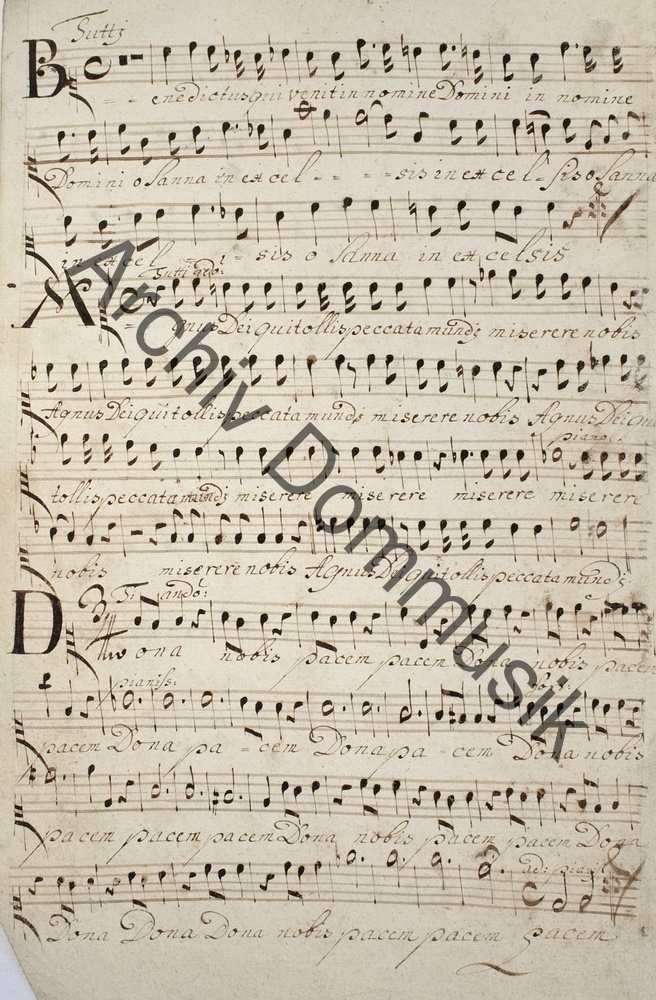 Tutti
Benedictus qui venit in nomine Domini in nomine
Domini o Sanna in excel - - - - sis in excel - sis o Sanna
in excel - - - sis o Sanna in excelsis
Tutti ado:
Agnus Dei qui tollis peccata mundi miserere nobis
Agnus Dei qui tollis peccata mundi miserere nobis Agnus Dei qui
piano:
tollis peccata mundi miserere miserere miserere miserere
nobis miserere nobis Agnus Dei qui tollis peccata mundi
T: ando:
Dona nobis pacem pacem Dona nobis pacem
pianiss:
pacem Dona pa - cem Dona pa - cem Dona nobis
pacem pacem pacem Dona nobis pacem pacem Dona
Dona Dona Dona nobis pacem pacem pacem
Archiv Dommusik